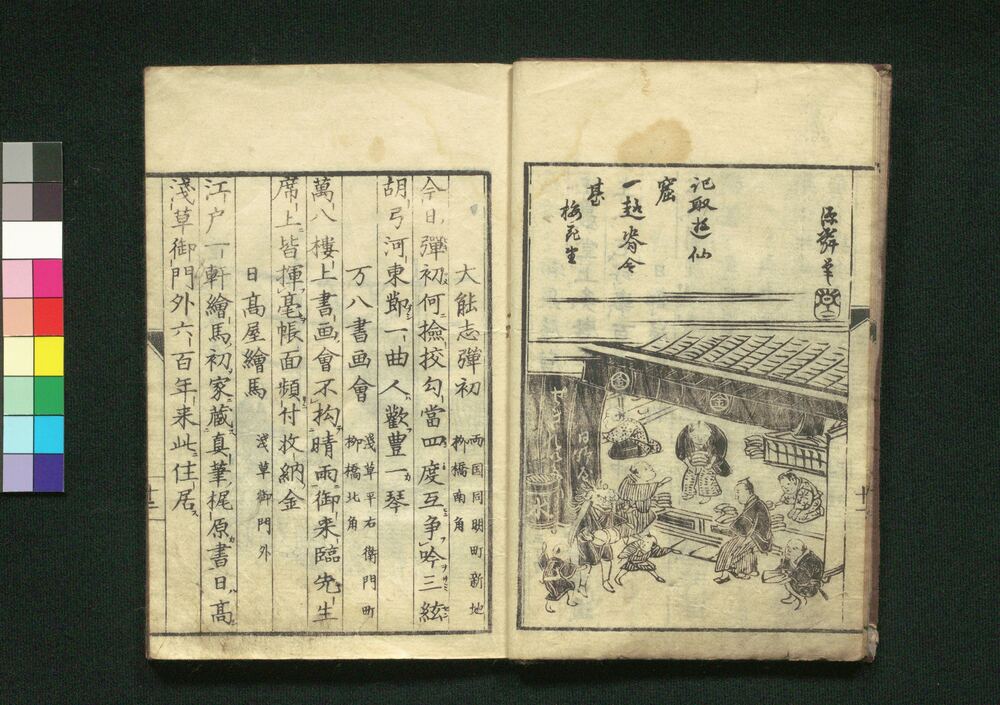 記取遊仙
窟
一越
甚
梅
金
金
水
大能志彈初
両国同朋町新地
柳橋南角
今日彈初何撿挍勾當四度互争吟三絃
胡弓河東節一曲人歡豊一琴
万八書画會
淺草平右衛門町
柳橋北角
萬八樓上書画會不拘晴雨御来臨先生
席上皆揮毫帳面頻付收納金
日髙屋繪馬
淺草御門外
江户一軒繪馬初家蔵真筆梶原書日髙
淺草御門外六百年来此住居
十三